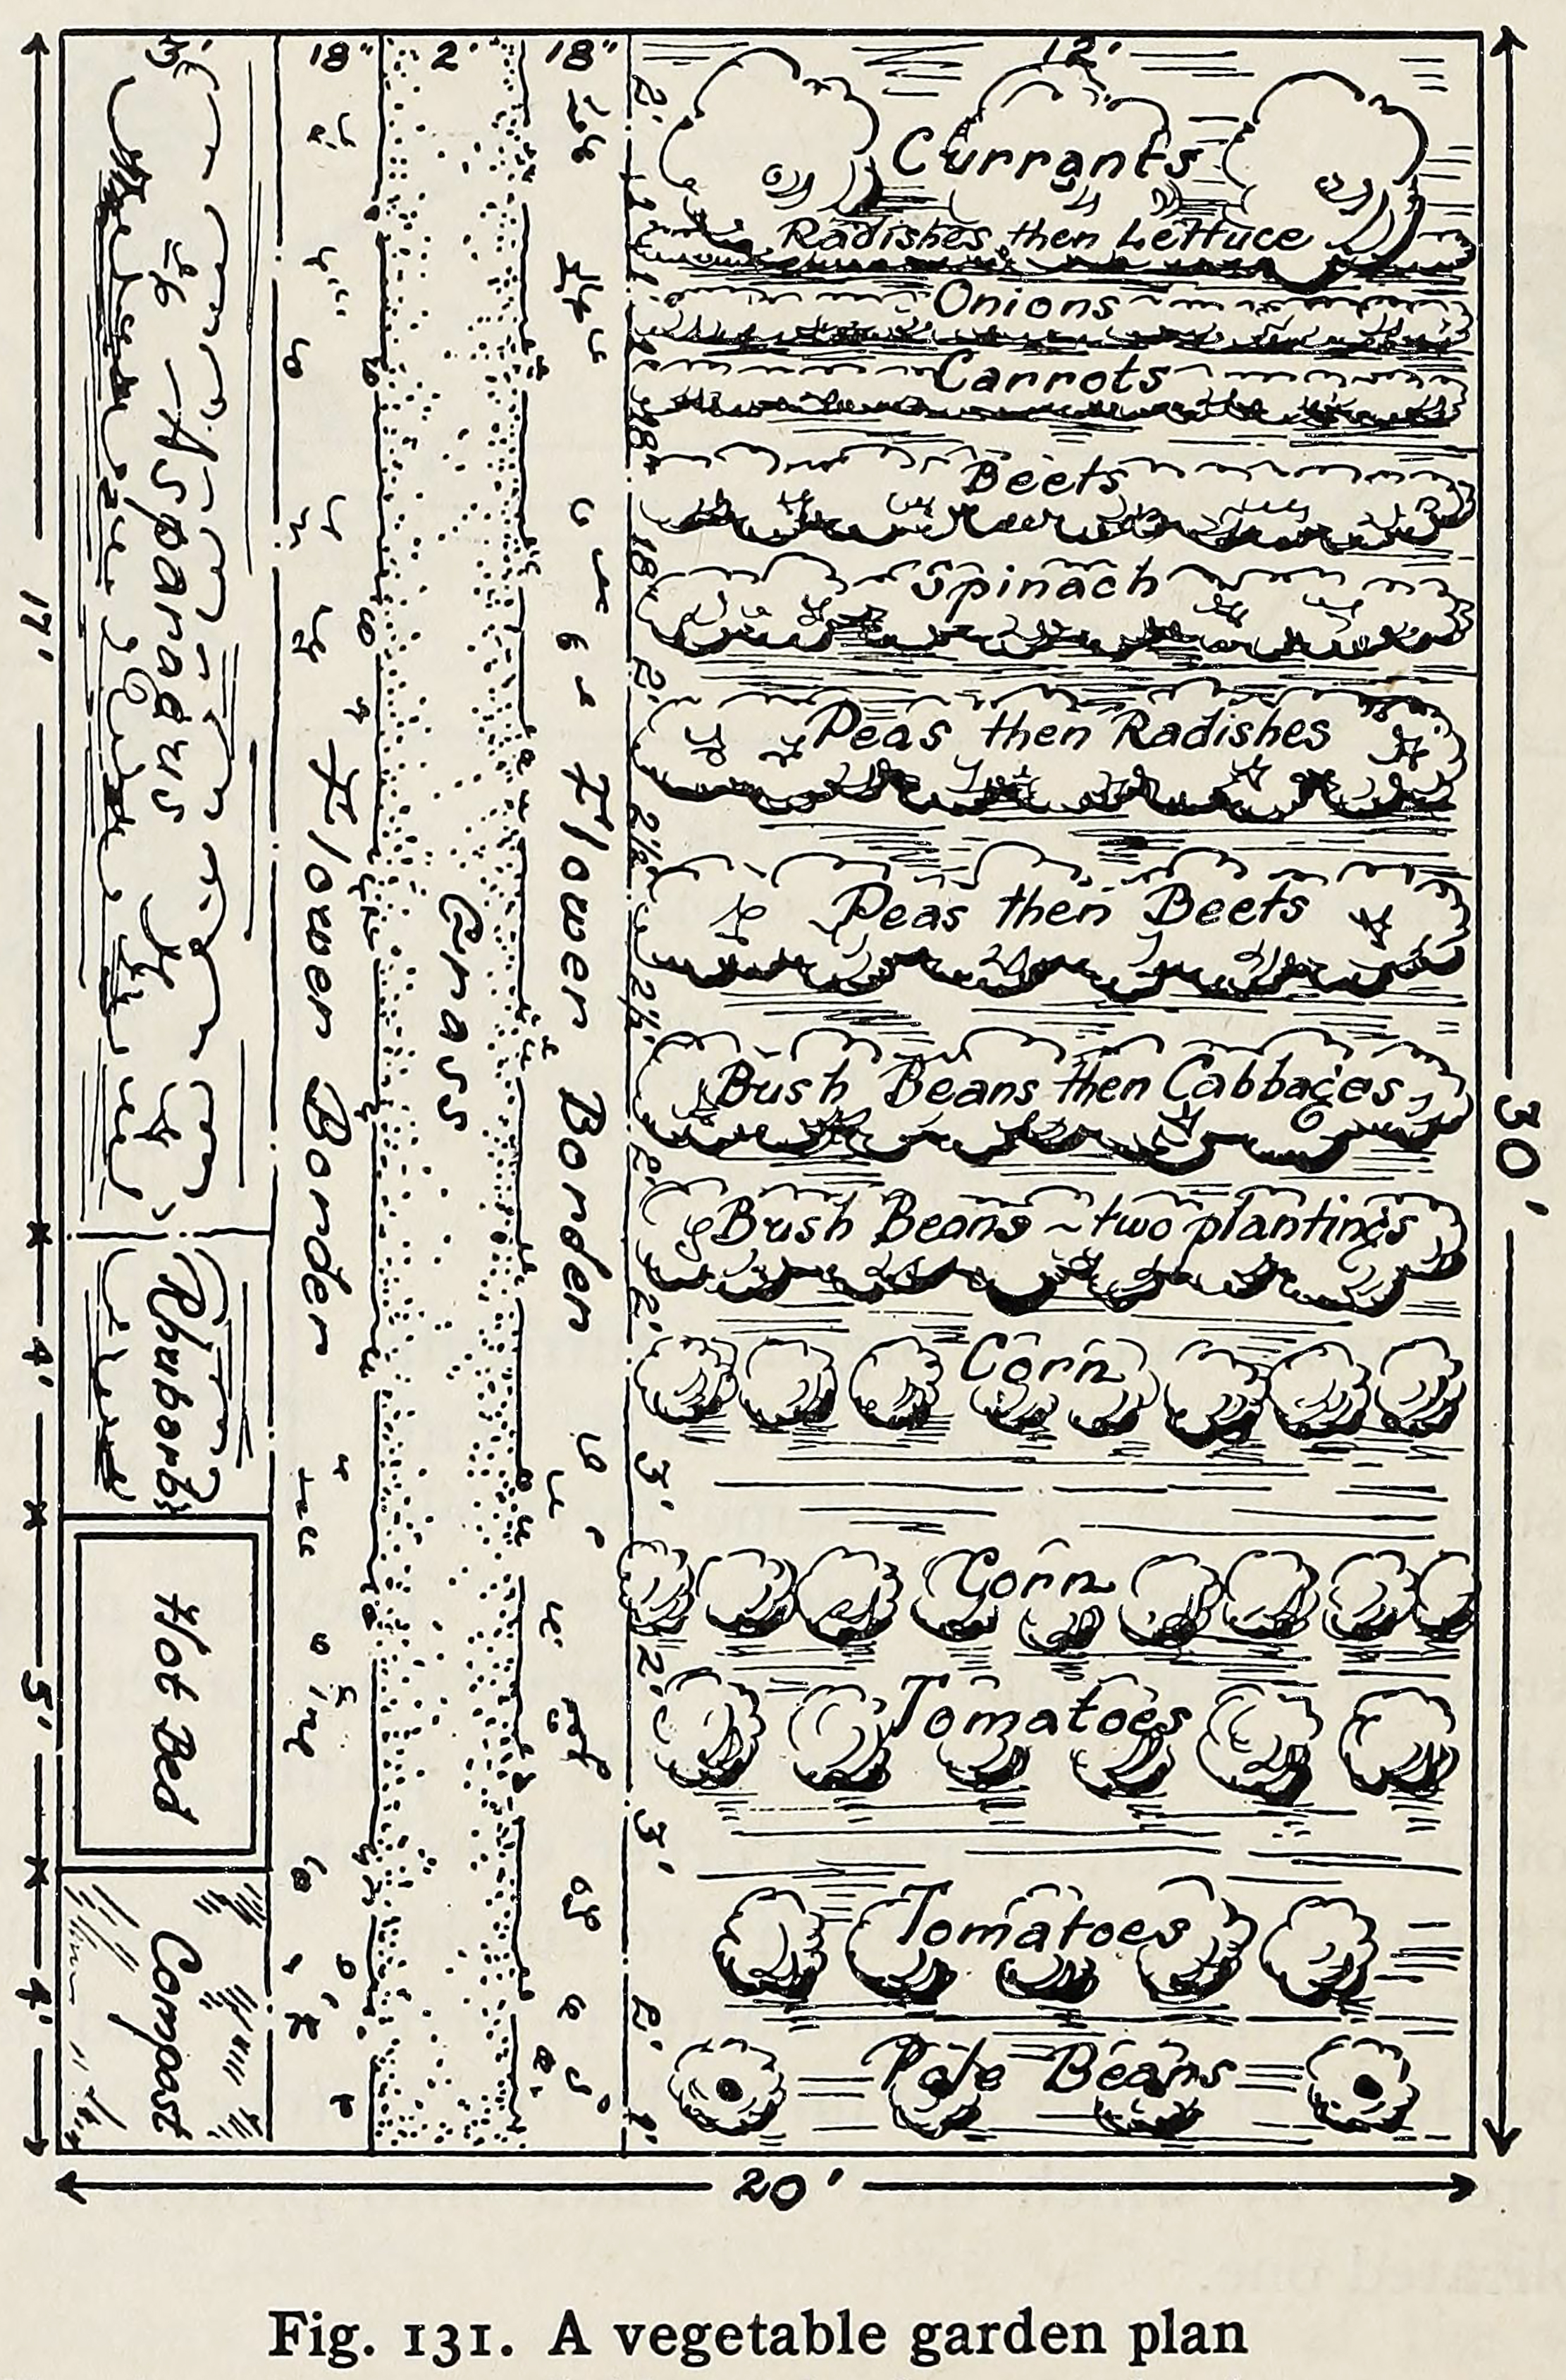 3' 18" 2' 18" 12'
2'
Currants
1'
Radishes then Lettuce
1'
Onions
1'
Carrots
18"
Beets
18"
Spinach
2'
Peas then Radishes
2½'
Peas then Beets
2½'
Bush Beans then Cabbages
2'
Bush Beans ~ two plantings
2'
Corn
3'
Corn
2'
Tomatoes
3'
Tomatoes
2'
Pole Beans
1'
17'
Asparagus
4'
Rhubarb
5'
Hot Bed
4'
Compost
Flower Border
Grass
Flower Border
30'
20'
Fig. 131. A vegetable garden plan